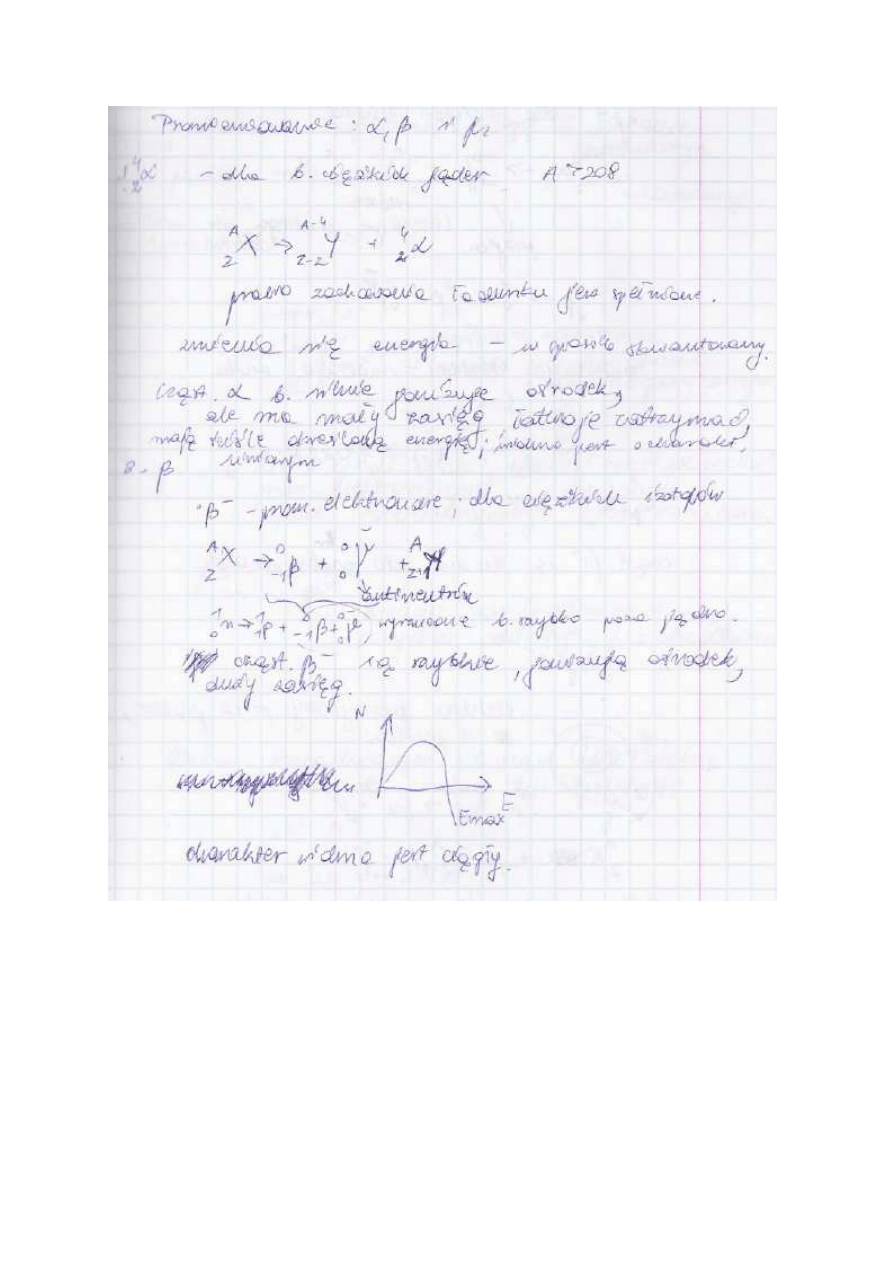 Promieniowanie : α, β i γ.
1. ⁴₂α – dla b. ciężkich jąder A > 208
ᴬ_Z X → ᴬ⁻⁴_Z₋₂ Y + ⁴₂α
prawo zachowania ładunku jest spełnione.
zmienia się energia – w sposób skwantowany.
cząst. α b. silnie jonizuje ośrodek,
ale ma mały zasięg łatwo je zatrzymać,
mają ściśle określoną energię; widmo jest o charakt.
liniowym
2. β
β⁻ – prom. elektronowe ; dla ciężkich izotopów
ᴬ_Z X → ⁰₋₁β + ⁰₀ν̄ + ᴬ_Z₊₁Y
antineutrino
¹₀n → ¹₁p + ⁰₋₁β + ⁰₀ν̄ wyrzucone b. szybko poza jądro.
cząst. β⁻ są szybkie, jonizują ośrodek,
duży zasięg.
N
E
Emax
charakter widma jest ciągły.